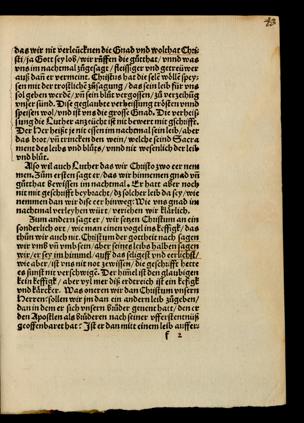 das wir nit verleücknen die Gnad vnd wolthat Chri-
sti/ ja Gott sey lob/ wir rüffen die gütthat/ vnnd was
vns im nachtmal zůgesagt/ fleissiger vnd getreüwer
auß dañ er vermeint. Christus hat die selē wöllē spey-
sen mit der trostlichē zůsagung/ das sein leib für vns
sol geben werdē/ vñ sein blůt vergossen/ zů verzeihūg
vnser sünd. Dise geglaubte verheissung tröstē vnnd
speisen wol/ vnd ist vns die grosse Gnad. Die verheis-
sūg die Luther anzeücht ist nit bewert mit gschifft.
Der Her heißt je nit essen im nachtmal sein leib/ aber
das brot/ vñ trincken den wein/ welche seind Sacra
ment des leibs vnd blůts/ vnnd nit wesenlich der leib
vnd blůt.
Also wil auch Luther das wir Christo zwo eer nem
men. Zům ersten sagt er/ das wir hinnemen gnad vñ
gütthat bewisen im nachtmal. Er hatt aber noch
nit mit gschrifft beybracht/ dz solcher leib da sey/ wie
nemmen dan wir dise eer hinweg: Wie vns gnad im
nachtmal verleyhen würt/ verichen wir klärlich.
Zum andern sagt er/ wir setzen Christum an ein
sonderlich ort/ wie man einen vogel ins keffigk/ das
thůn wir auch nit. Christum der gottheit nach sagen
wir vmb vñ vmb sein/ aber seines leibs halben sagen
wir/ er sey im himmel/ auff das seligest vnd erlichest/
wie aber/ ist vns nit not zewissen/ die gschrifft hette
es sunst nit verschwigē. Der himel ist den glaubigen
kein keffigk/ aber vyl mer diß erdtreich ist ein kefigk
vnd kärcker. Was oneren wir dan Christum vnsern
Herren: sollen wir jm dan ein andern leib zůgeben/
dan in dem er sich vnsern brůder genent hatt/ den er
den Apostlen als brüderen nach seiner vfferstentnüß
geoffenbaret hat? Ist er dan mitt einem leib aufferr-
f 2